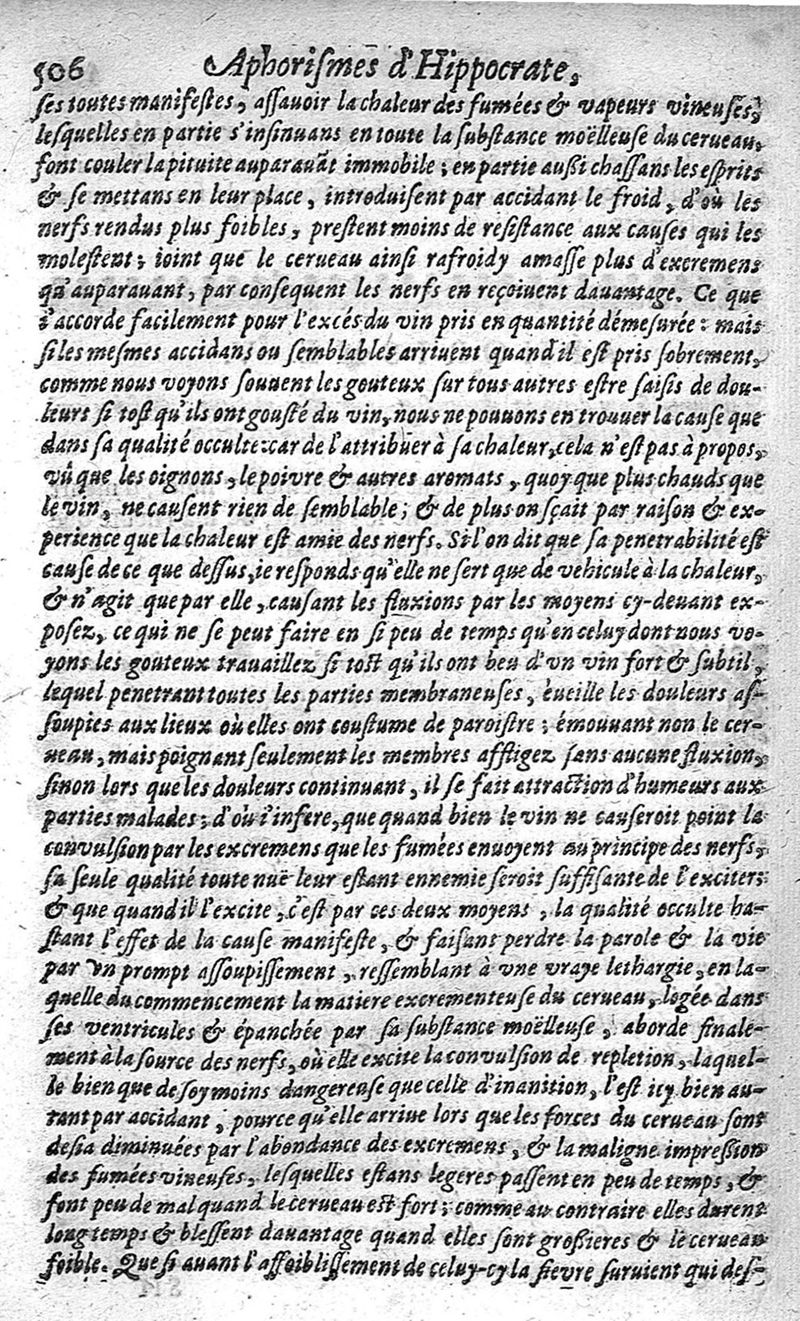 506 Aphorismes d'Hippocrate,
ses toutes manifestes, assauoir la chaleur des fumées & vapeurs vineuses,
lesquelles en partie s'insinuans en toute la substance moëlleuse du cerueau,
font couler la pituite auparauāt immobile ; en partie außi chassans les esprits
& se mettans en leur place, introduisent par accidant le froid, d'où les
nerfs rendus plus foibles, prestent moins de resistance aux causes qui les
molestent ; ioint que le cerueau ainsi rafroidy amasse plus d'excremens
qu'auparauant, par consequent les nerfs en reçoiuent dauantage. Ce que
i'accorde facilement pour l'excés du vin pris en quantité démesurée : mais
si les mesmes accidans ou semblables arriuent quand il est pris sobrement,
comme nous voyons souuent les gouteux sur tous autres estre saisis de dou-
leurs si tost qu'ils ont gousté du vin, nous ne pouuons en trouuer la cause que
dans sa qualité occulte : car de l'attribuër à sa chaleur, cela n'est pas à propos,
vû que les oignons, le poivre & autres aromats, quoy que plus chauds que
le vin, ne causent rien de semblable ; & de plus on sçait par raison & ex-
perience que la chaleur est amie des nerfs. Si l'on dit que sa penetrabilité est
cause de ce que dessus, ie responds qu'elle ne sert que de vehicule à la chaleur,
& n'agit que par elle, causant les fluxions par les moyens cy-deuant ex-
posez, ce qui ne se peut faire en si peu de temps qu'en celuy dont nous vo-
yons les gouteux trauaillez si tost qu'ils ont beu d'vn vin fort & subtil,
lequel penetrant toutes les parties membraneuses, éueille les douleurs as-
soupies aux lieux où elles ont coustume de paroistre ; émouuant non le cer-
ueau, mais poignant seulement les membres affligez sans aucune fluxion,
sinon lors que les douleurs continuant, il se fait attraction d'humeurs aux
parties malades ; d'où i'infere, que quand bien le vin ne causeroit point la
convulsion par les excremens que les fumées enuoyent au principe des nerfs,
sa seule qualité toute nuë leur estant ennemie seroit suffisante de l'exciter :
& que quand il l'excite, c'est par ces deux moyens, la qualité occulte ha-
stant l'effet de la cause manifeste, & faisant perdre la parole & la vie
par vn prompt assoupissement, ressemblant à vne vraye lethargie, en la-
quelle du commencement la matiere excrementeuse du cerueau, logée dans
ses ventricules & épanchée par sa substance moëlleuse, aborde finale-
ment à la source des nerfs, où elle excite la convulsion de repletion, laquel-
le bien que de soy moins dangereuse que celle d'inanition, l'est icy bien au-
tant par accidant ; pource qu'elle arriue lors que les forces du cerueau sont
desia diminuées par l'abondance des excremens, & la maligne impression
des fumées vineuses, lesquelles estans legeres passent en peu de temps, &
font peu de mal quand le cerueau est fort ; comme au contraire elles durent
long temps & blessent dauantage quand elles sont großieres & le cerueau
foible. Que si auant l'affoiblissement de celuy-cy la fievre suruient qui des-